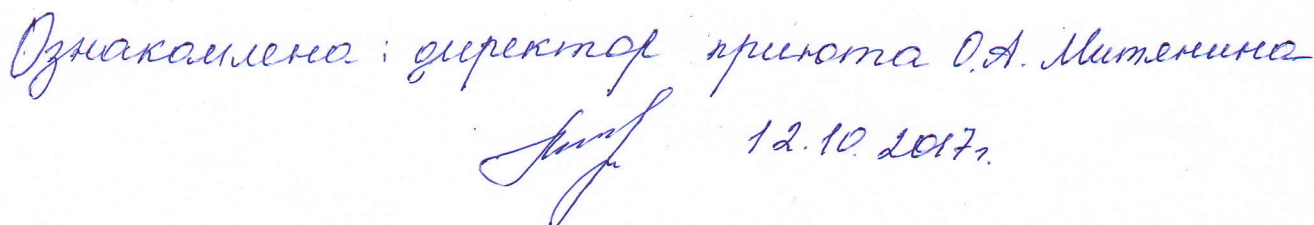 Ознакомлена: директор приюта О.А. Митянина
12.10.2017г.